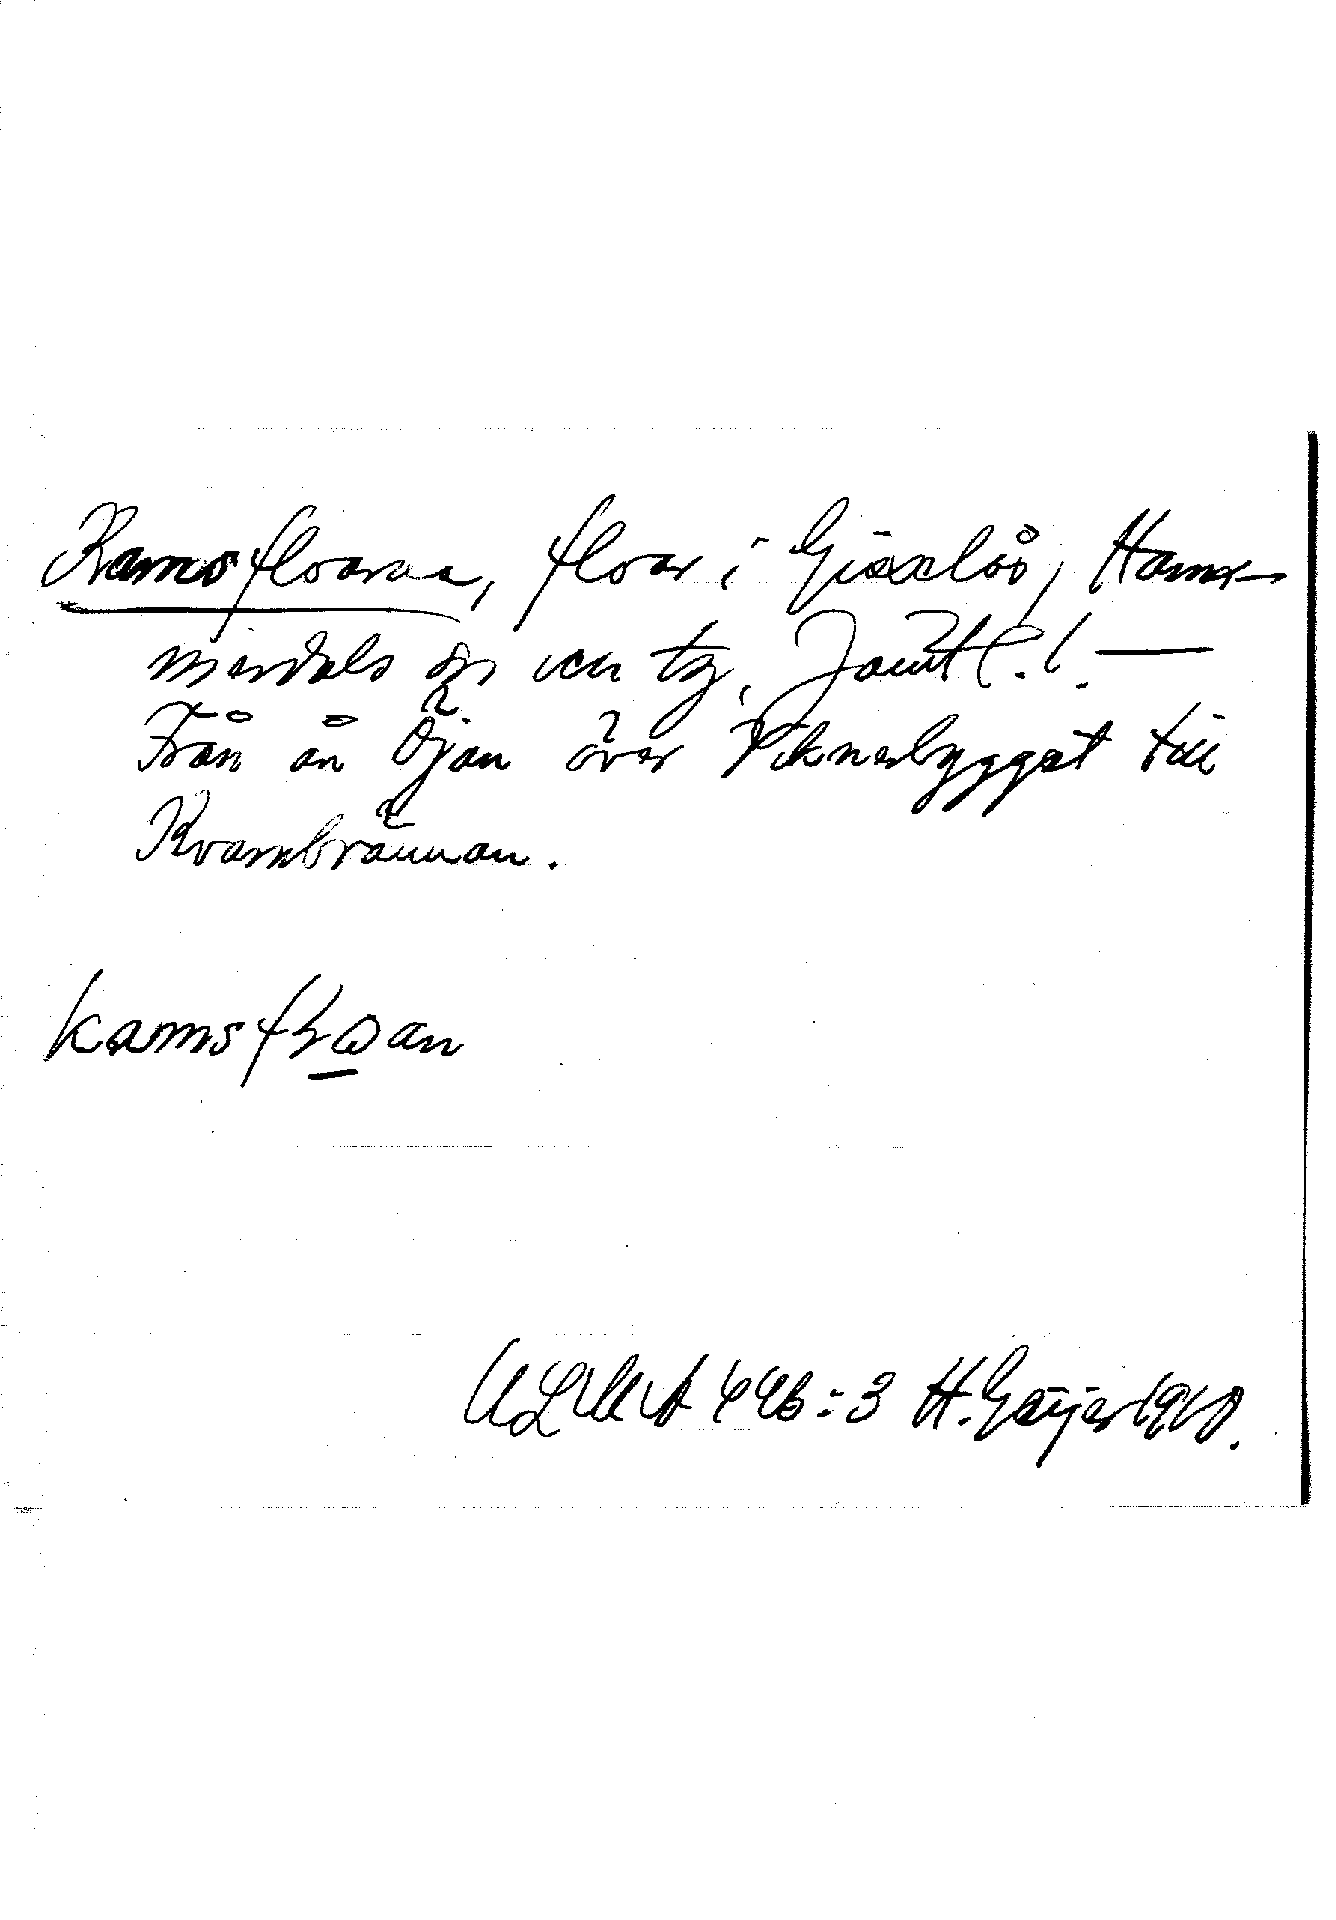 Kamsfloarna, floar i Gisselås, Ham-
merdals sn och tg, Jämtl. l. —
Från ån Öjan över Viknerbygget till
Kvarnbrännan.
kamsf an
ULMA 496:3 H. Geijer 1910.